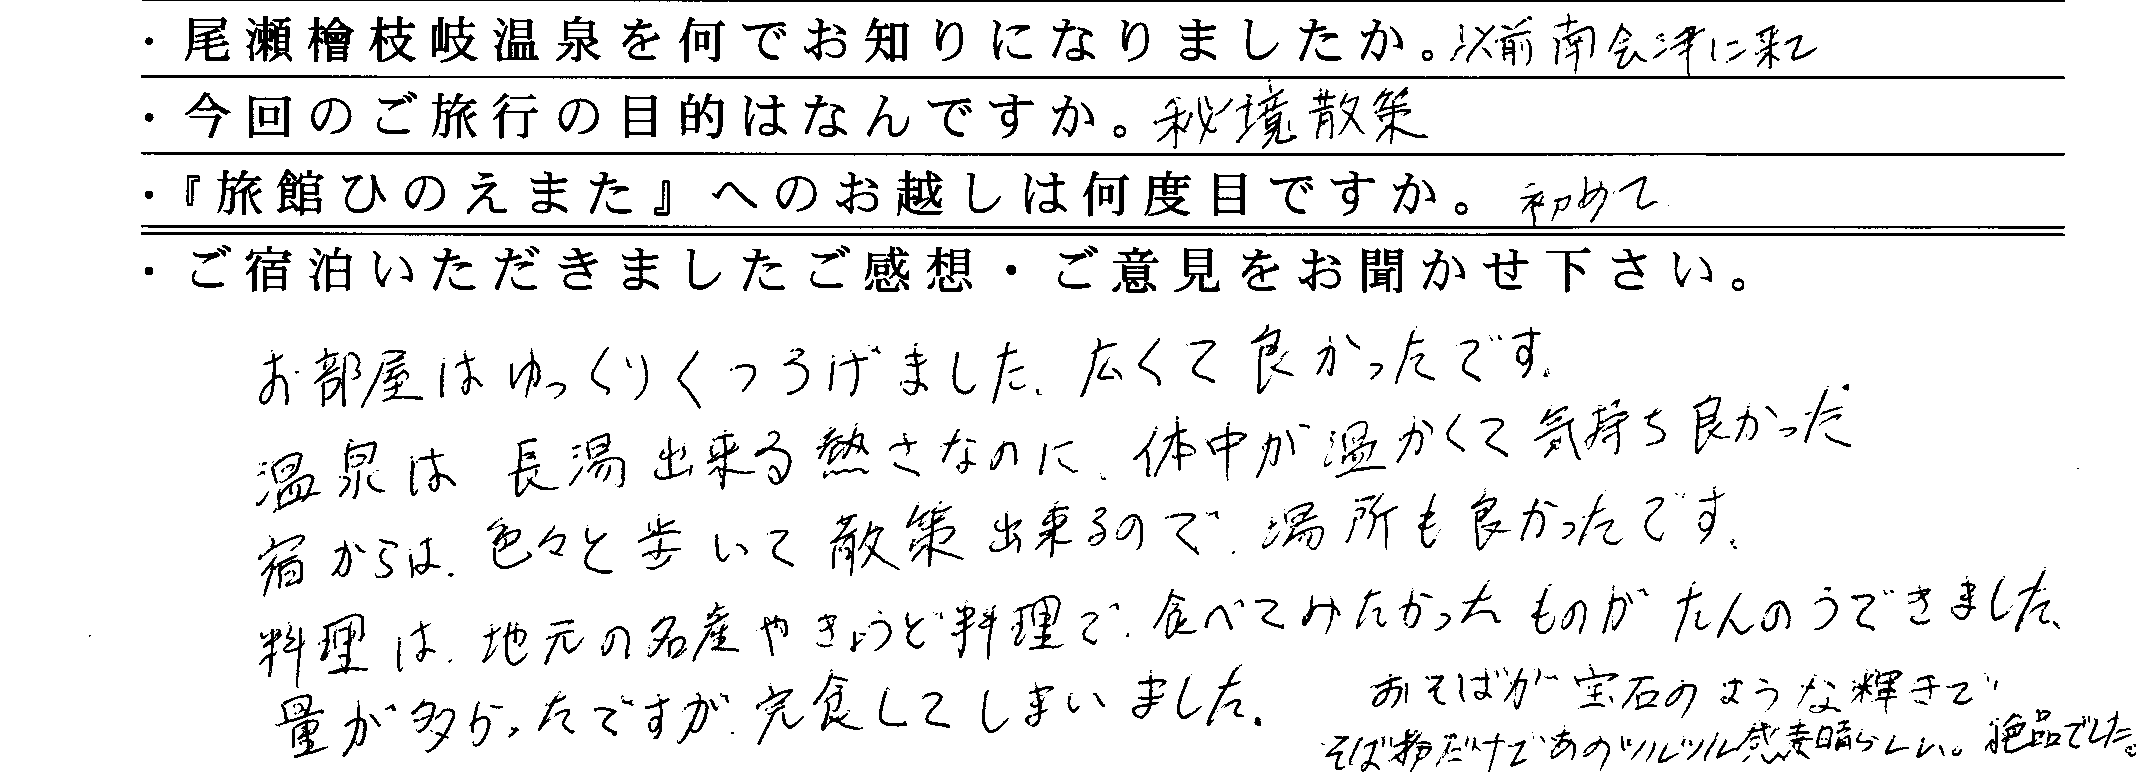 ・尾瀬檜枝岐温泉を何でお知りになりましたか。以前南会津に来て
・今回のご旅行の目的はなんですか。秘境散策
・『旅館ひのえまた』へのお越しは何度目ですか。初めて
・ご宿泊いただきましたご感想・ご意見をお聞かせ下さい。
お部屋はゆっくりくつろげました、広くて良かったです。
温泉は長湯出来る熱さなのに、体中が温かくて気持ち良かった
宿からは、色々と歩いて散策出来るので、場所も良かったです。
料理は、地元の名産やきょうど料理で、食べてみたかったものがたんのうできました、
量が多かったですが、完食してしまいました。
おそばが宝石のような輝きで
そば粉だけであのツルツル感素晴らしい。絶品でした。